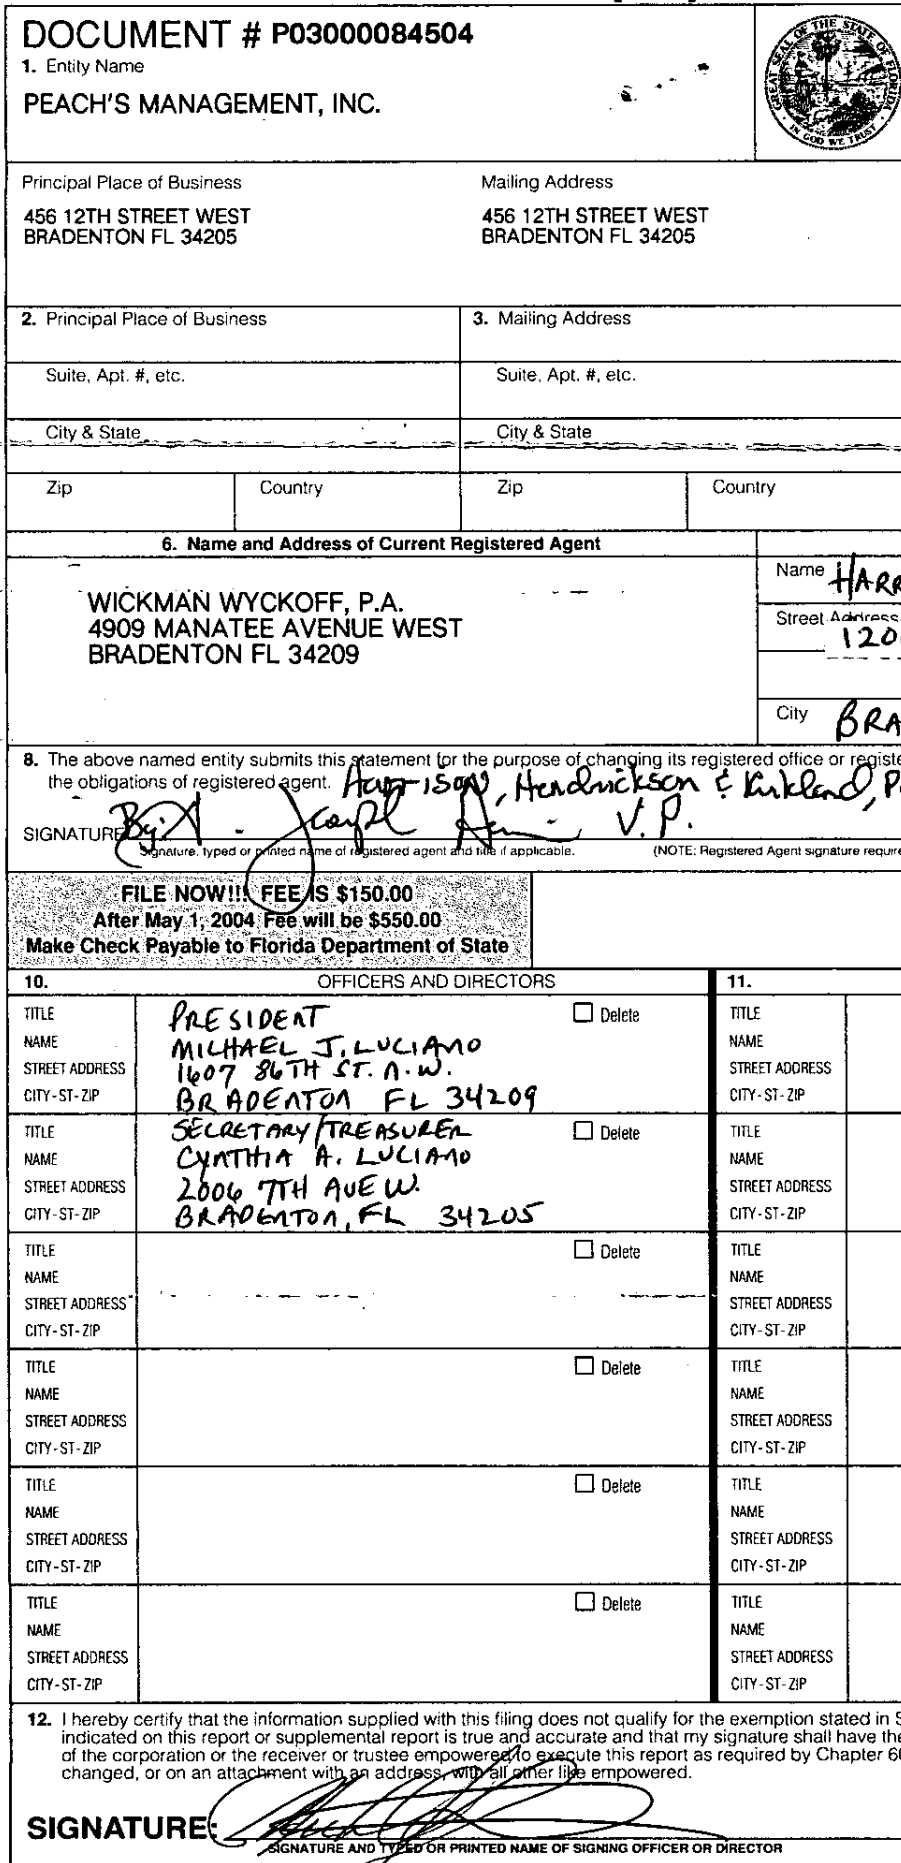 DOCUMENT # P03000084504
1. Entity Name
PEACH'S MANAGEMENT, INC.
GREAT SEAL OF THE STATE OF FLORIDA
IN GOD WE TRUST
Principal Place of Business
456 12TH STREET WEST
BRADENTON FL 34205
Mailing Address
456 12TH STREET WEST
BRADENTON FL 34205
2. Principal Place of Business
3. Mailing Address
Suite, Apt. #, etc.
Suite, Apt. #, etc.
City & State
City & State
Zip
Country
Zip
Country
6. Name and Address of Current Registered Agent
WICKMAN WYCKOFF, P.A.
4909 MANATEE AVENUE WEST
BRADENTON FL 34209
Name HARR
Street Address
120
City BRA
8. The above named entity submits this statement for the purpose of changing its registered office or registe
the obligations of registered agent. Harrison, Hendrickson & Kirkland, P.
SIGNATURE By: Joseph V.P.
Signature, typed or printed name of registered agent and title if applicable. (NOTE: Registered Agent signature require
FILE NOW!!! FEE IS $150.00
After May 1, 2004 Fee will be $550.00
Make Check Payable to Florida Department of State
10. OFFICERS AND DIRECTORS 11.
TITLE PRESIDENT Delete TITLE
NAME MICHAEL J. LUCIANO NAME
STREET ADDRESS 1607 86TH ST. N.W. STREET ADDRESS
CITY-ST-ZIP BRADENTON FL 34209 CITY-ST-ZIP
TITLE SECRETARY/TREASURER Delete TITLE
NAME CYNTHIA A. LUCIANO NAME
STREET ADDRESS 2006 7TH AVE W. STREET ADDRESS
CITY-ST-ZIP BRADENTON, FL 34205 CITY-ST-ZIP
TITLE Delete TITLE
NAME NAME
STREET ADDRESS STREET ADDRESS
CITY-ST-ZIP CITY-ST-ZIP
TITLE Delete TITLE
NAME NAME
STREET ADDRESS STREET ADDRESS
CITY-ST-ZIP CITY-ST-ZIP
TITLE Delete TITLE
NAME NAME
STREET ADDRESS STREET ADDRESS
CITY-ST-ZIP CITY-ST-ZIP
TITLE Delete TITLE
NAME NAME
STREET ADDRESS STREET ADDRESS
CITY-ST-ZIP CITY-ST-ZIP
12. I hereby certify that the information supplied with this filing does not qualify for the exemption stated in S
indicated on this report or supplemental report is true and accurate and that my signature shall have the
of the corporation or the receiver or trustee empowered to execute this report as required by Chapter 60
changed, or on an attachment with an address, with all other like empowered.
SIGNATURE:
SIGNATURE AND TYPED OR PRINTED NAME OF SIGNING OFFICER OR DIRECTOR